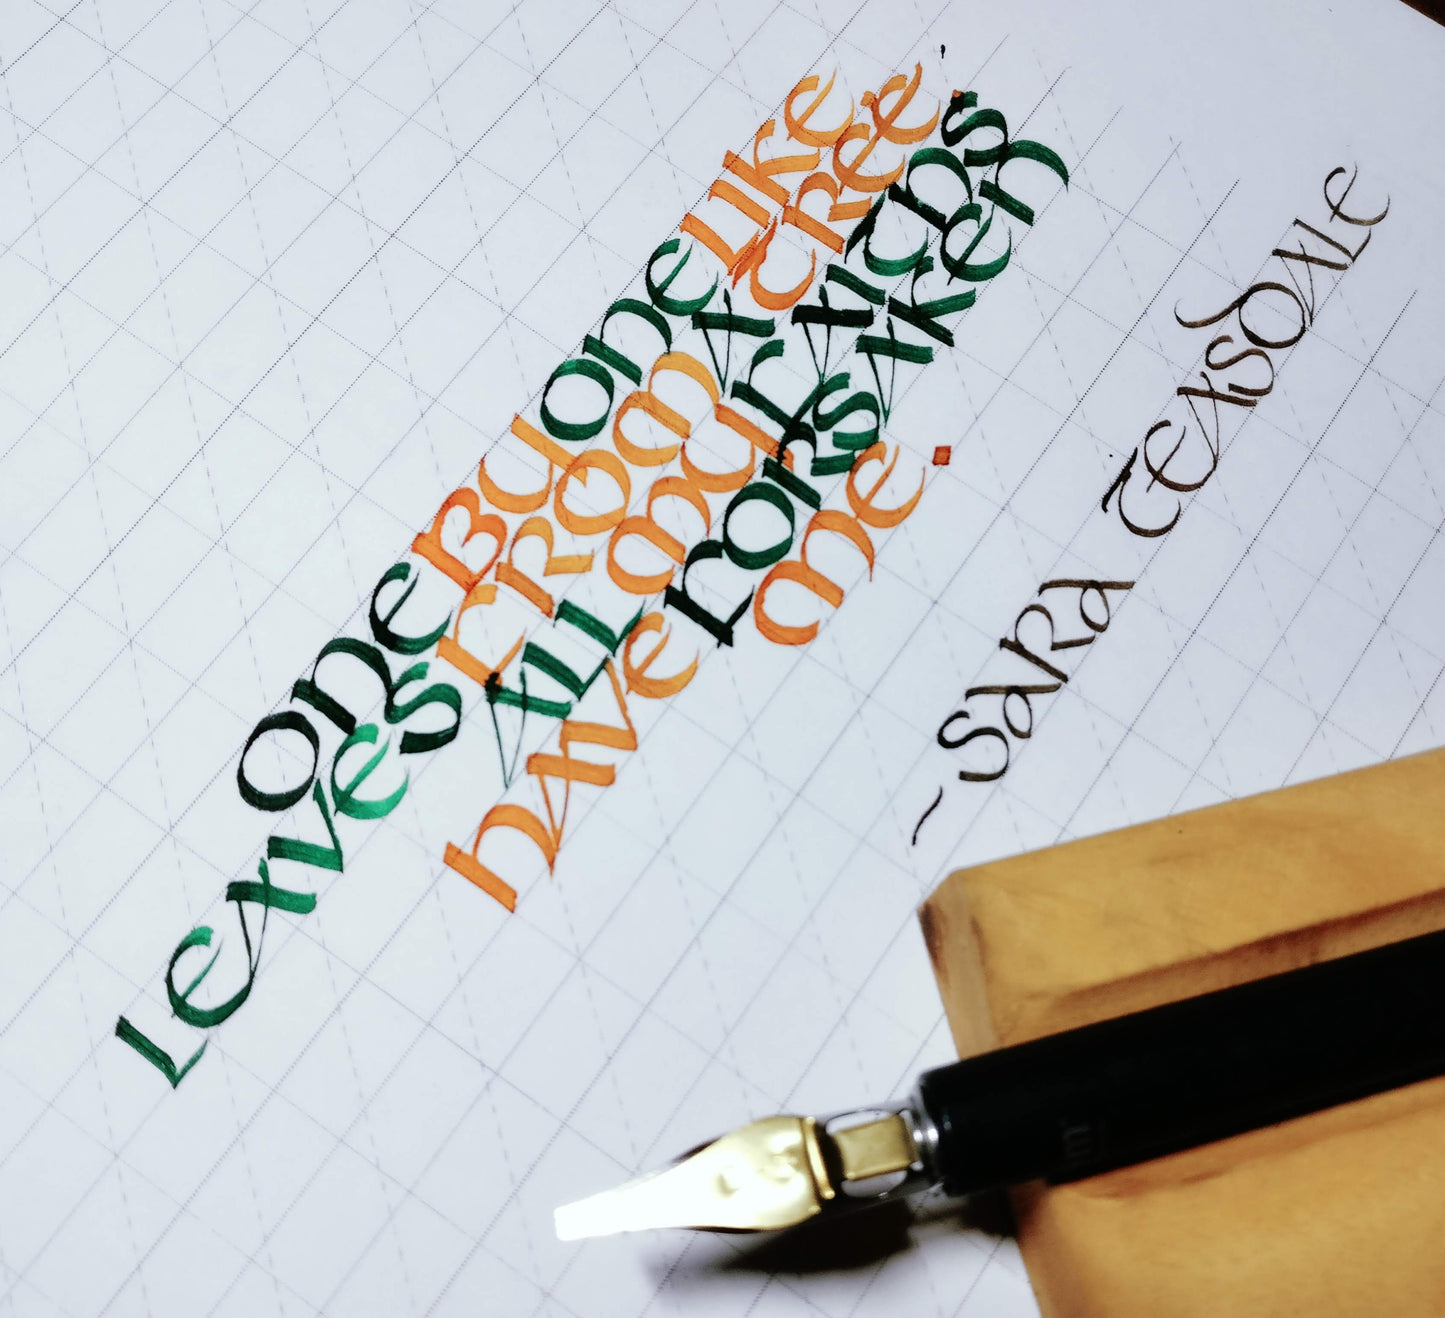 one BY one Like
Leaves From a Tree.
All my Faiths
have Forsaken
me.
~ Sara Teasdale